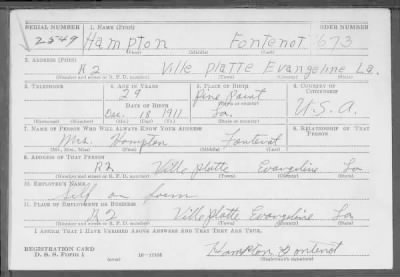 SERIAL NUMBER 1. NAME (Print) ORDER NUMBER
2549 Hampton Fontenot 673
(First) (Middle) (Last)
2. ADDRESS (Print)
R2 Ville platte Evangeline La.
(Number and street or R. F. D. number) (Town) (County) (State)
3. TELEPHONE 4. AGE IN YEARS 5. PLACE OF BIRTH 6. COUNTRY OF CITIZENSHIP
29 Pine Point
DATE OF BIRTH (Town or county)
Dec. 18 1911 La. U.S.A.
(Exchange) (Number) (Mo.) (Day) (Yr.) (State or country)
7. NAME OF PERSON WHO WILL ALWAYS KNOW YOUR ADDRESS 8. RELATIONSHIP OF THAT PERSON
Mrs. Hampton Fontenot
(Mr., Mrs., Miss) (First) (Middle) (Last)
9. ADDRESS OF THAT PERSON
R2 Ville platte Evangeline La
(Number and street or R. F. D. number) (Town) (County) (State)
10. EMPLOYER'S NAME
Self on farm
11. PLACE OF EMPLOYMENT OR BUSINESS
R2 Ville platte Evangeline La
(Number and street or R. F. D. number) (Town) (County) (State)
I AFFIRM THAT I HAVE VERIFIED ABOVE ANSWERS AND THAT THEY ARE TRUE.
REGISTRATION CARD Hampton Fontenot
D. S. S. Form 1 (Registrant's signature)